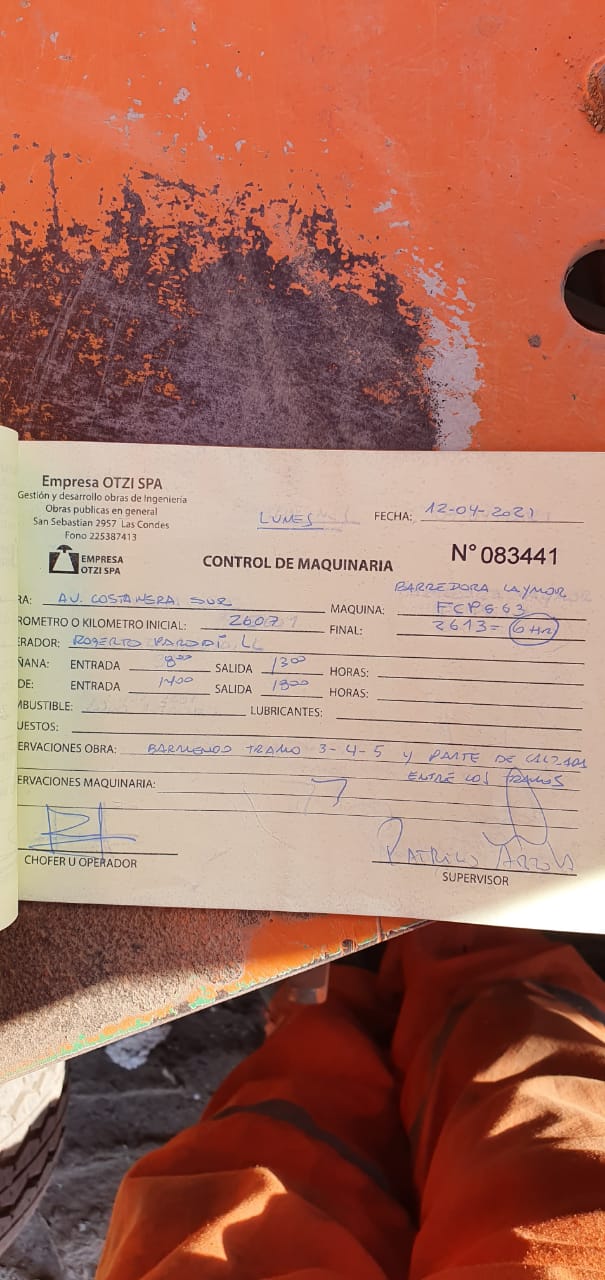 Empresa OTZI SPA
Gestión y desarrollo obras de Ingeniería
Obras publicas en general
San Sebastian 2957 Las Condes
Fono 225387413
EMPRESA
OTZI SPA
LUNES FECHA: 12-04-2021
CONTROL DE MAQUINARIA N° 083441
BARREDORA LAYMOR
RA: AV. COSTANERA SUR MAQUINA: FCPG63
ROMETRO O KILOMETRO INICIAL: 2607 FINAL: 2613= 6 Hr
ERADOR: ROBERTO PARODI LL
ÑANA: ENTRADA 8:00 SALIDA 13:00 HORAS:
DE: ENTRADA 14:00 SALIDA 18:00 HORAS:
MBUSTIBLE: LUBRICANTES:
UESTOS:
ERVACIONES OBRA: BARRIENDO TRAMO 3-4-5 Y PARTE DE CALZADA
ENTRE LOS TRAMOS
ERVACIONES MAQUINARIA:
CHOFER U OPERADOR
PATRICIO
SUPERVISOR